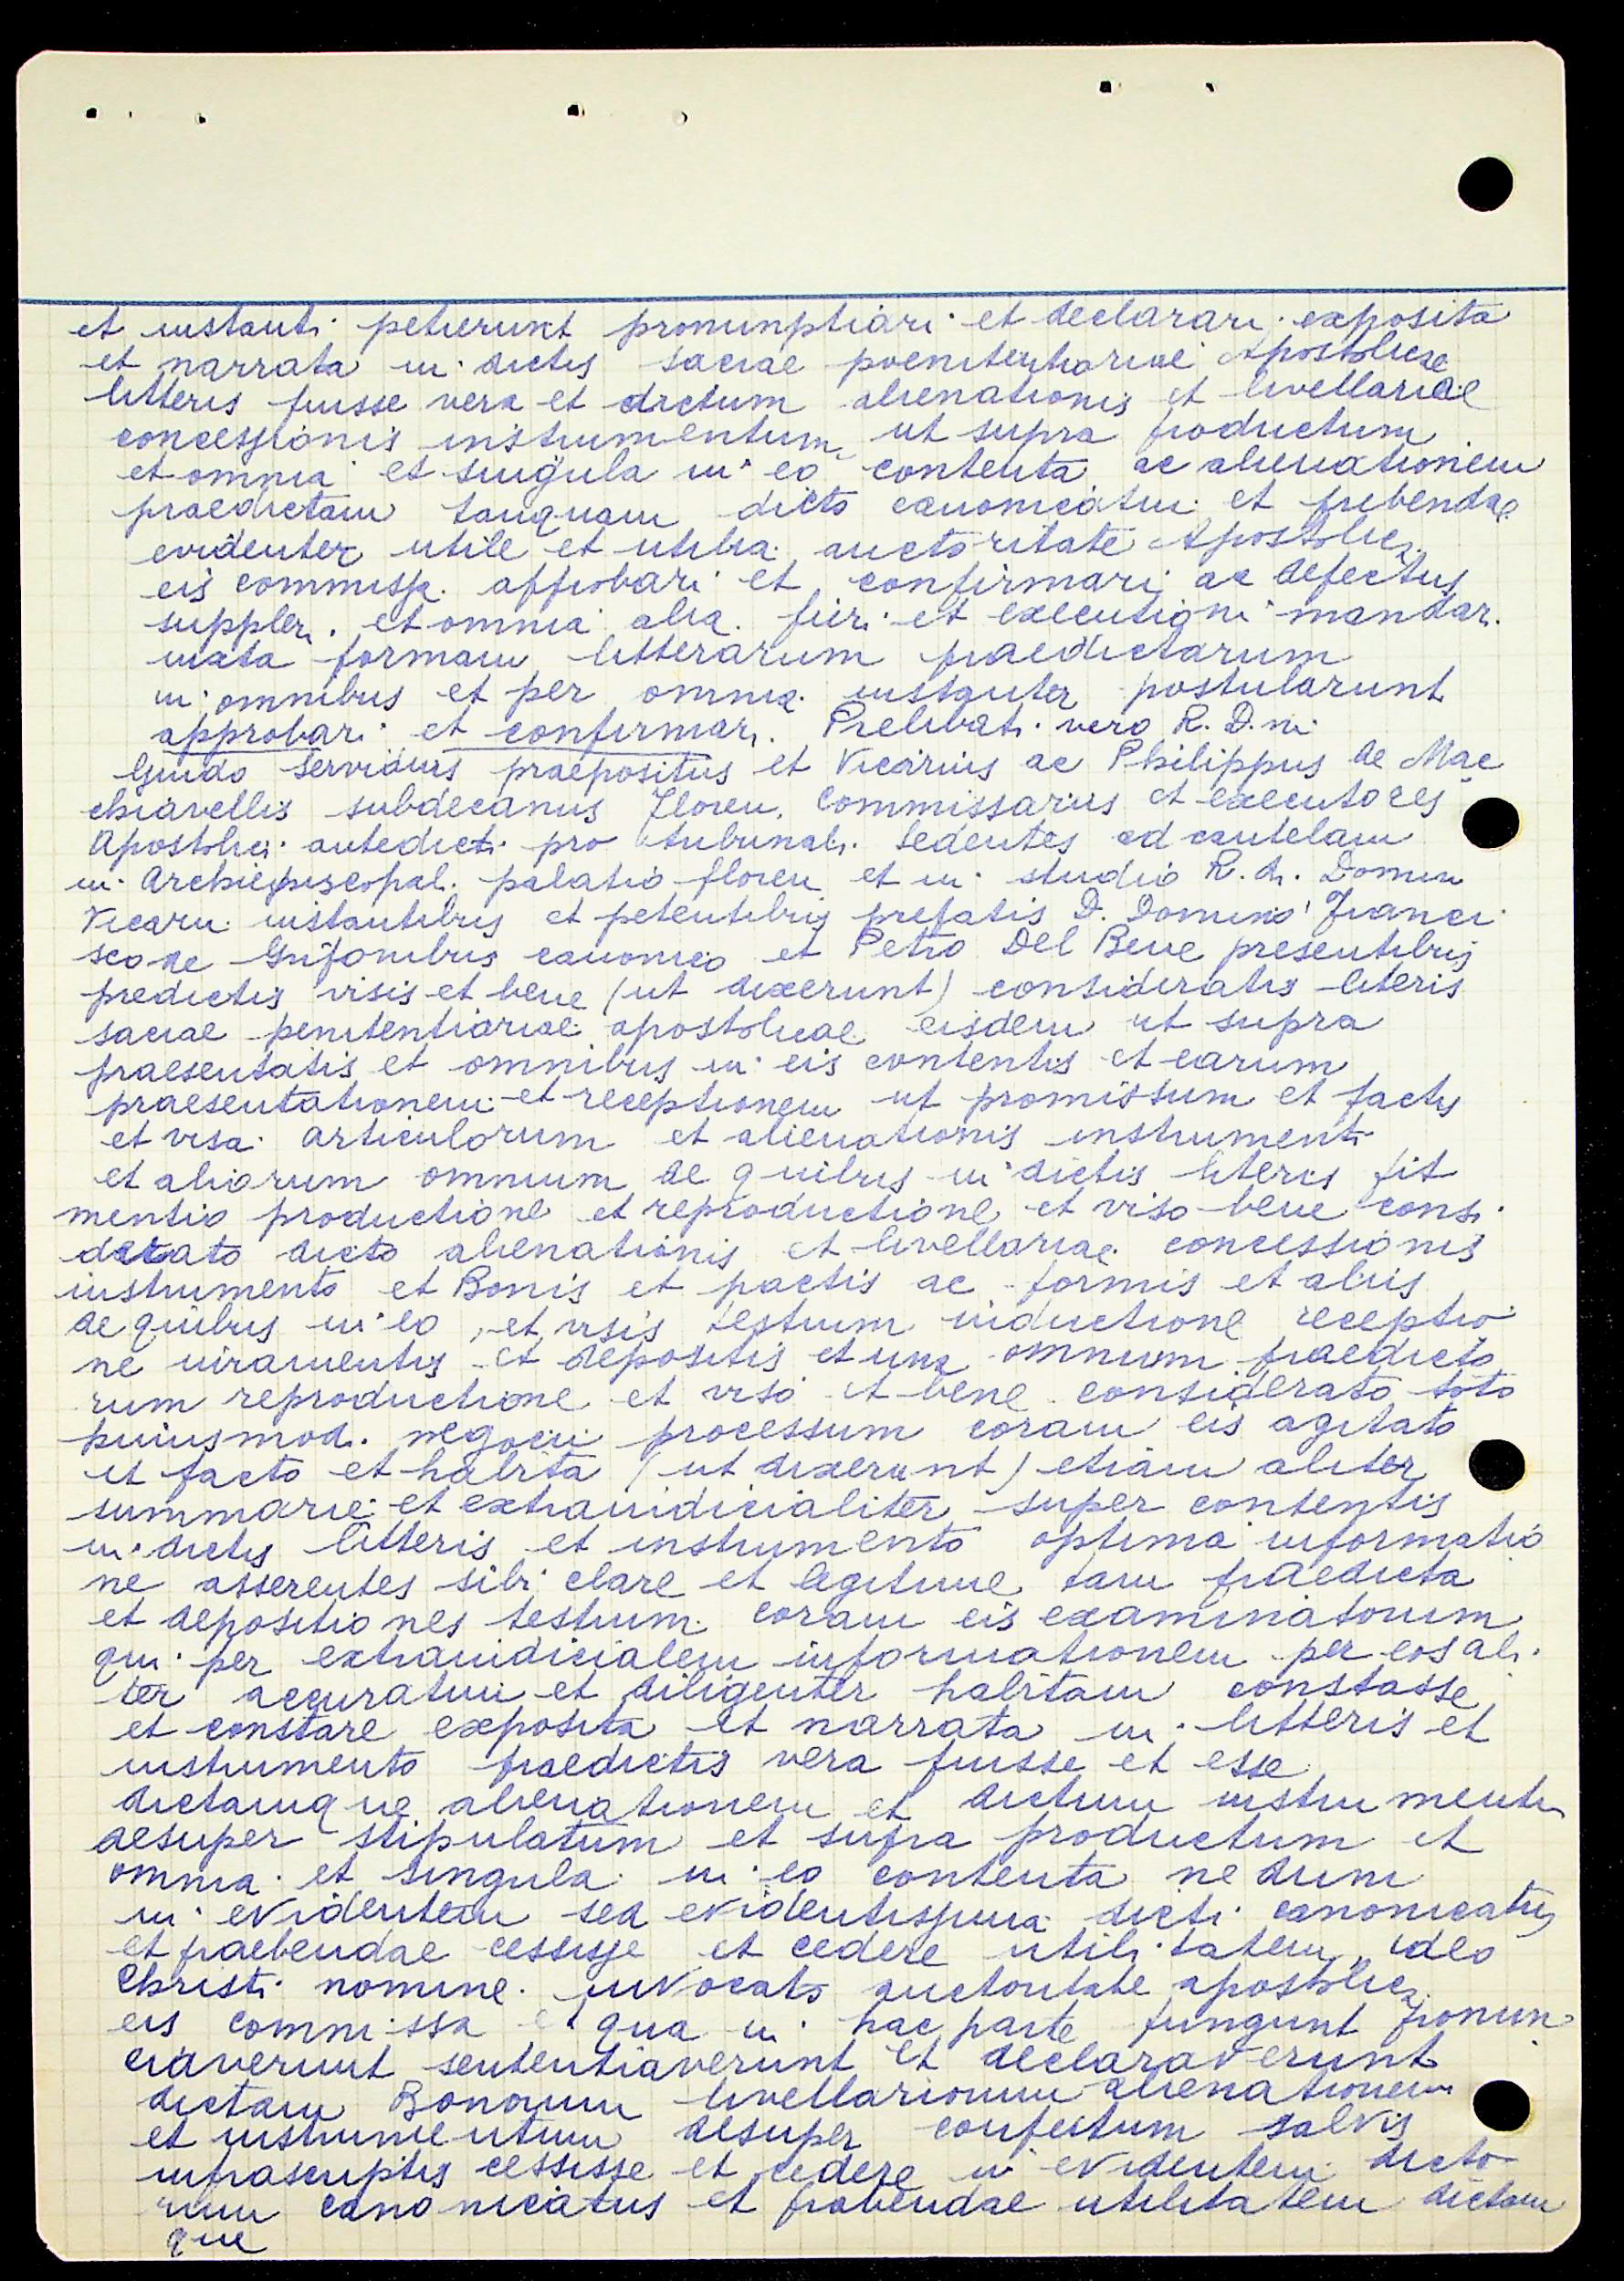 et instanti petierunt pronumptiari et declarari exposita
et narrata in dictis sacrae poenitentiariae Apostolicae
litteris fuisse vera et dictum alienationis et livellariae
concessionis instrumentum ut supra productum
et omnia et singula in eo contenta ac alienationem
praedictam tanquam dicto canonicatui et prebendae
evidenter utile et utilia auctoritate Apostolica
eis commissa approbari et confirmari ac defectus
suppleri et omnia alia fieri et executioni mandari
iuxta formam litterarum praedictarum
in omnibus et per omnia instanter postularunt
approbari et confirmari. Prelibati vero R. D.ni
Guido Servidius praepositus et Vicarius ac Philippus de Mac
chiavellis subdecanus Floren. Commissarius et executores
Apostolici antedicti pro tribunali sedentes ad cautelam
in Archiepiscopal. palatio floren et in studio R. Domin
Vicarii instantibus et petentibus prefatis D. Domino Franci
sco de Grifonibus canonico et Petro Del Bene presentibus
predictis visis et bene (ut dixerunt) consideratis literis
sacrae penitentiariae apostolicae eisdem ut supra
praesentatis et omnibus in eis contentis et earum
praesentationem et receptionem ut promissum et factis
et visa articulorum et alienationis instrumenti
et aliorum omnium de quibus in dictis literis fit
mentio productione et reproductione et viso bene consi
derato dicto alienationis et livellariae concessionis
instrumento et Bonis et pactis ac formis et aliis
de quibus in eo, et visis testium inductione receptio
ne iuramentis et depositis et una omnium praedicto
rum reproductione et viso et bene considerato toto
huiusmodi negocii processum coram eis agitato
et facto et habita (ut dixerunt) etiam aliter
summarie et extraiudicialiter super contentis
in dictis litteris et instrumento optima informatio
ne asserentes sibi clare et legitime tam praedicta
et depositiones testium coram eis examinatorum
qui per extraiudicialem informationem per eos ali
ter accuratim et diligenter habitam constasse
et constare exposita et narrata in litteris et
instrumento praedictis vera fuisse et esse
dictamque alienationem et dictum instrumentum
desuper stipulatum et supra productum et
omnia et singula in eo contenta nedum
in evidentem sed evidentissima dicti canonicatus
et praebendae cessisse et cedere utilitatem, ideo
Christi nomine invocato auctoritate apostolica
eis commissa et qua in hac parte fungunt pronun
ciaverunt sententiaverunt et declaraverunt
dictam Bonorum livellariorum alienationem
et instrumentum desuper confectum salvis
infrascriptis cessisse et cedere in evidentem dicto
rum canonicatus et prabendae utilitatem dictam
que